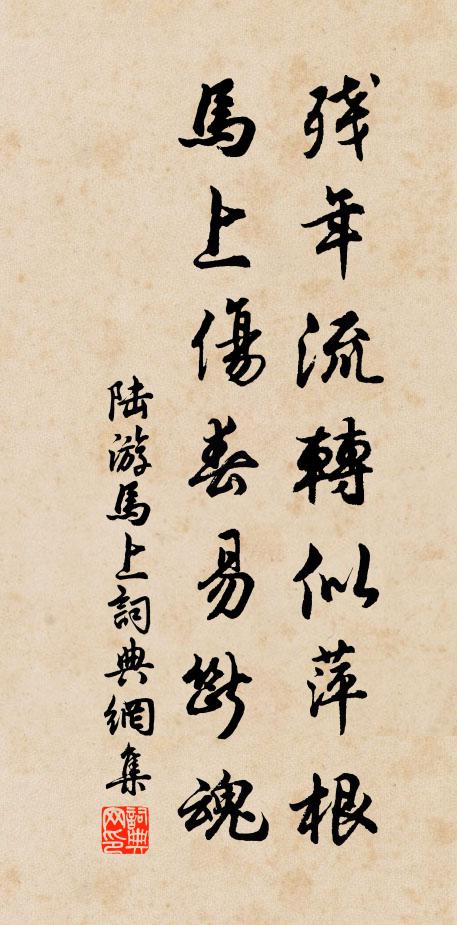 殘年流轉似萍根
馬上傷春易斷魂
陸游馬上詞典網集
詞典網印